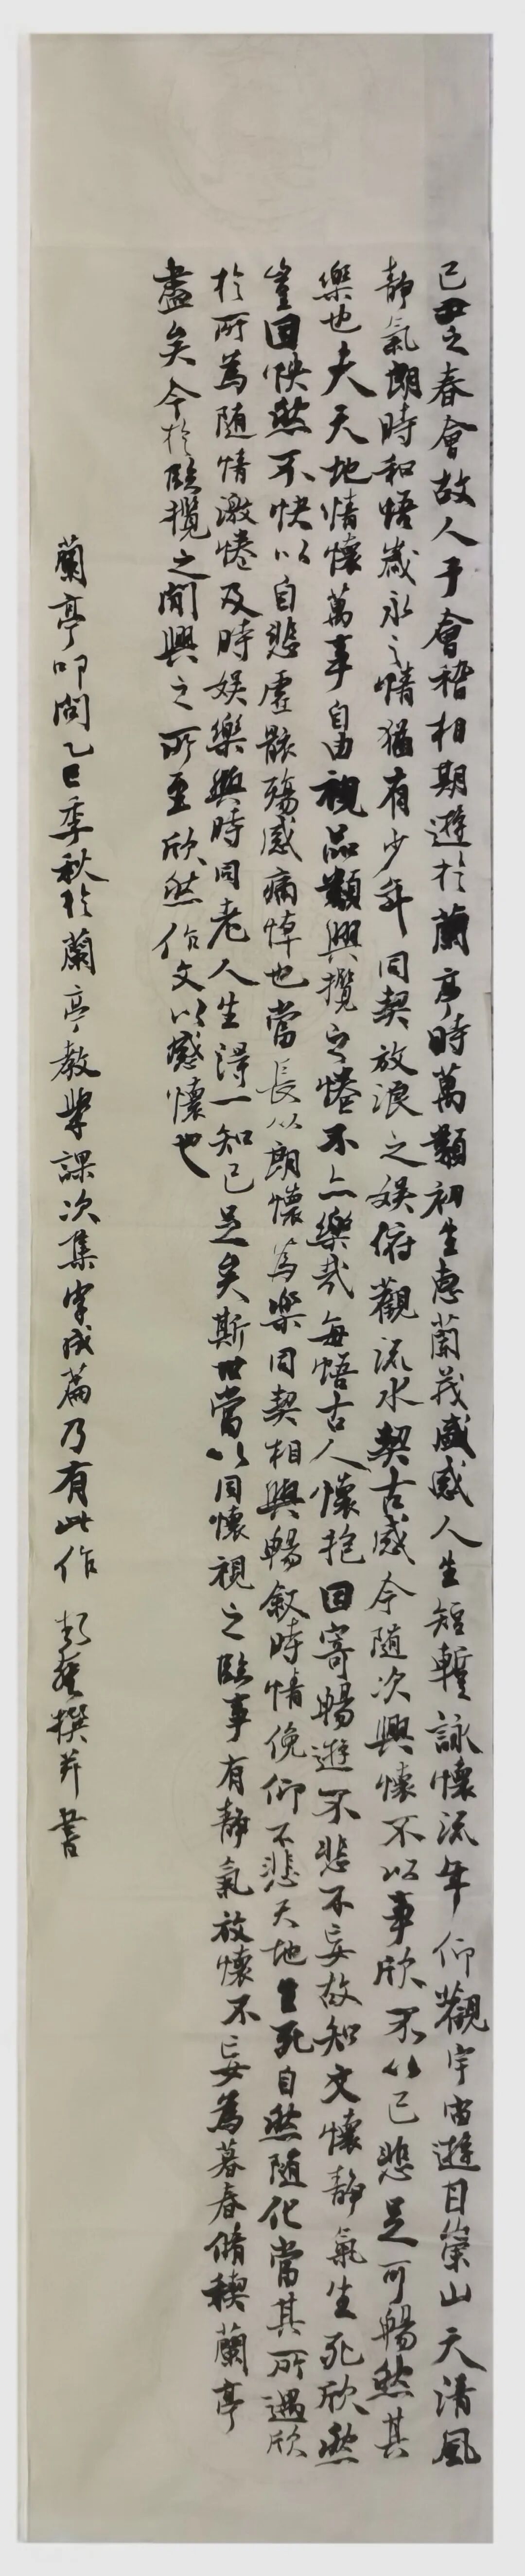 已丑之春會故人于會稽相期遊於蘭亭時萬類初生惠蘭茂盛感人生短暫詠懷流年仰觀宇宙遊目崇山天清風
靜氣朗時和悟歲永之情猶有少年同契放浪之娛俯觀流水契古感今随次興懷不以事欣不以已悲足可暢然其
樂也夫天地情懷萬事自由視品類興攬之惓不亦樂哉每悟古人懷抱因寄暢遊不悲不妄故知文懷靜氣生死欣然
豈因怏然不快以自悲虛骸殤感痛悼也當長以朗懷為樂同契相與暢叙時情俛仰不悲天地生死自然随化當其所遇欣
於所為随情激惓及時娛樂與時同老人生得一知已足矣斯世當以同懷視之臨事有靜氣放懷不妄為暮春脩稧蘭亭
盡矣今於臨攬之間興之所至欣然作文以感懷也
蘭亭叩問乙巳季秋於蘭亭教學課次集字成篇乃有此作 撰并書